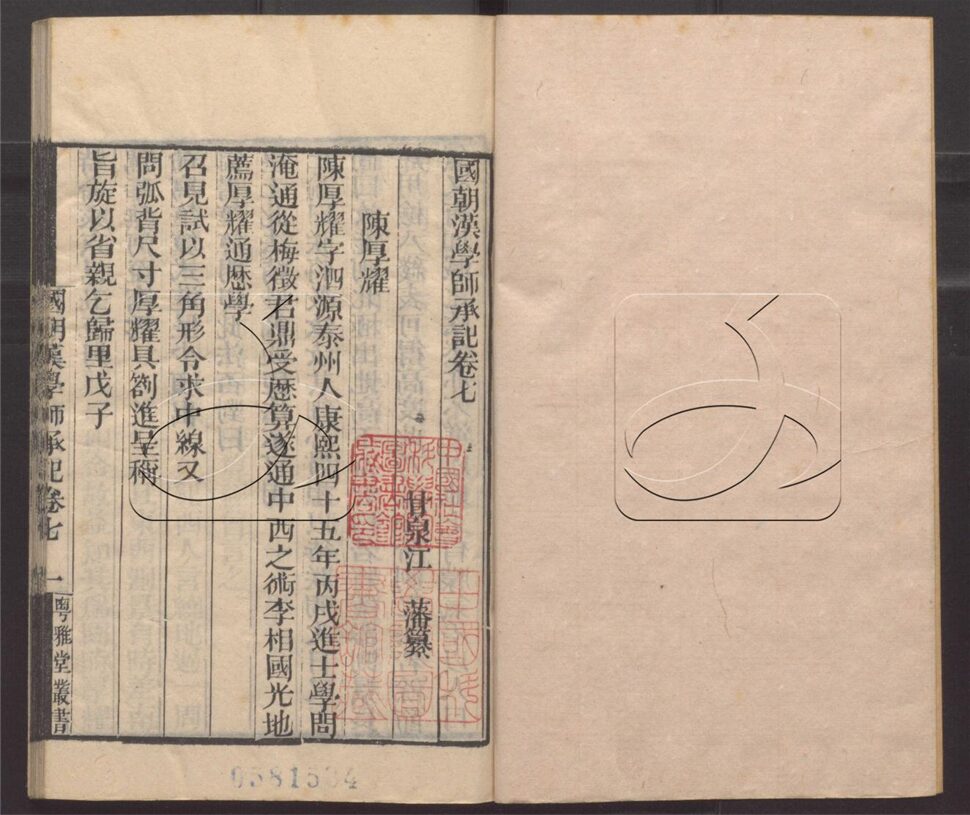 國朝漢學師承記卷七
甘泉江 藩纂
陳厚耀
陳厚耀字泗源泰州人康熙四十五年丙戌進士學問
淹通從梅徵君鼎受厯算遂通中西之術李相國光地
薦厚耀通厯學
召見試以三角形令求中線又
問弧背尺寸厚耀具劄進呈稱
旨旋以省親乞歸里戊子
國朝漢學師承記卷七
一
粵雅堂叢書